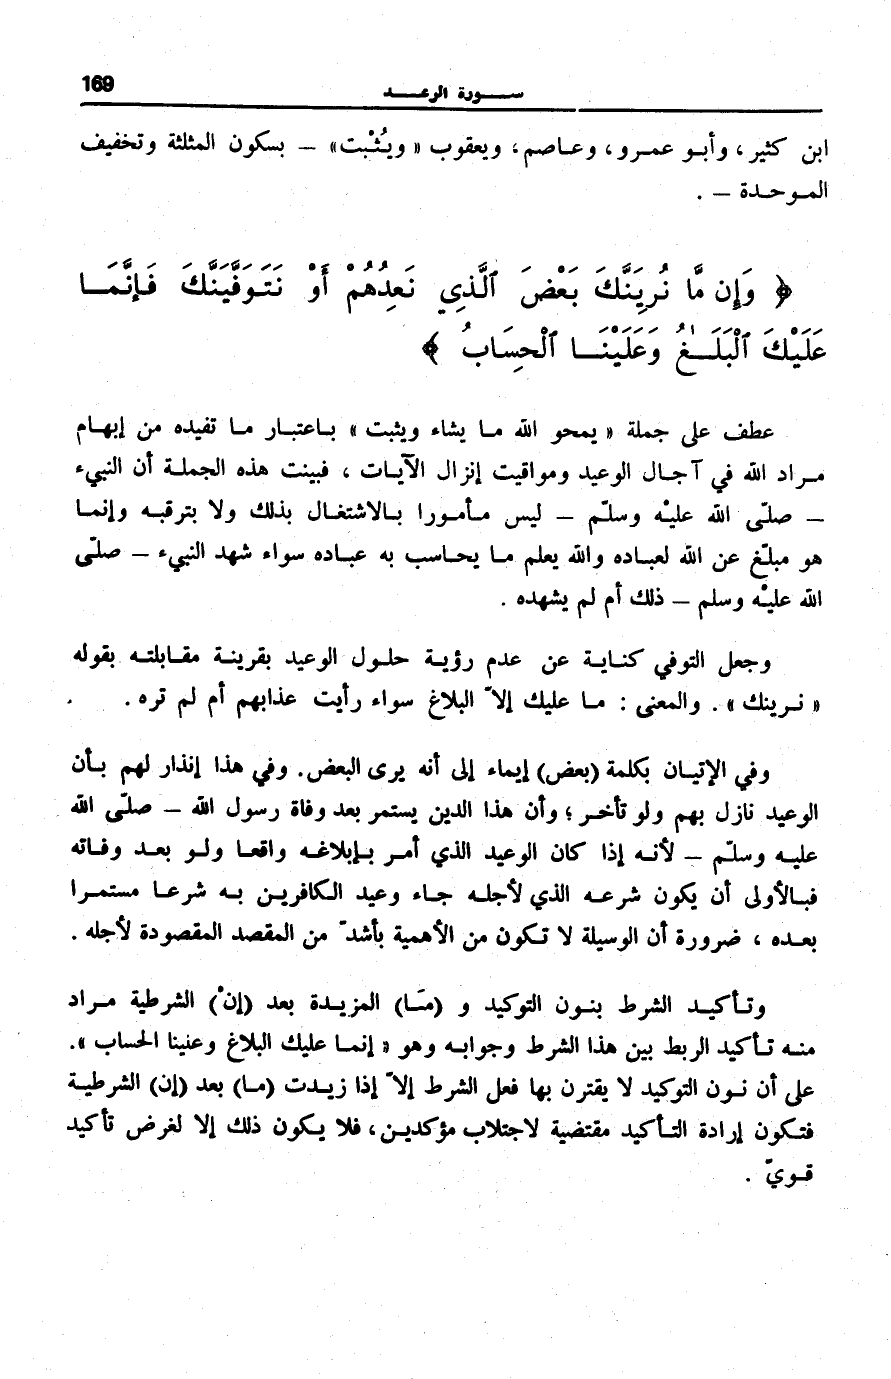 169
سـورة الرعـد
ابن كثير ، وأبـو عمـرو ، وعـاصم ، ويعقوب « ويُثْبت» – بسكون المثلثة وتخفيف
المـوحـدة – .
﴿ وَإِن مَّا نُرِيَنَّكَ بَعْضَ ٱلَّذِي نَعِدُهُمْ أَوْ نَتَوَفَّيَنَّكَ فَإِنَّمَـا
عَلَيْكَ ٱلْبَلَـٰغُ وَعَلَيْنَـا ٱلْحِسَابُ ﴾
عطف على جملة « يمحو الله مـا يشاء ويثبت » بـاعتبـار مـا تفيده من إبهـام
مـراد الله في آجـال الوعيد ومواقيت إنزال الآيـات ، فبينت هذه الجملـة أن النبيء
– صلّى الله عليْه وسلّم – ليس مـأمـورا بـالاشتغـال بذلك ولا بترقبـه وإنمـا
هو مبلّغ عن الله لعبـاده والله يعلم مـا يحـاسب به عبـاده سواء شهد النبيء – صلّى
الله عليْه وسلم – ذلك أم لم يشهده .
وجعل التوفي كنـايـة عن عدم رؤيـة حلـول الوعيد بقرينـة مقـابلتـه بقوله
« نـرينك » . والمعنى : مـا عليك إلاّ البلاغ سواء رأيت عذابهم أم لم تره .
وفي الإتيـان بكلمة (بعض) إيماء إلى أنه يرى البعض. وفي هذا إنذار لهم بـأن
الوعيد نازل بهم ولو تأخـر ؛ وأن هذا الدين يستمر بعد وفاة رسول الله – صلّى الله
عليـه وسلّم – لأنـه إذا كان الوعيد الذي أمـر بـإبلاغـه واقعـا ولـو بعـد وفـاته
فبـالأولى أن يكون شرعـه الذي لأجلـه جـاء وعيد الكافريـن بـه شرعـا مستمـرا
بعـده ، ضرورة أن الوسيلة لا تـكون من الأهمية بأشدّ من المقصد المقصودة لأجله .
وتـأكيـد الشرط بنـون التوكيد و (مـَا) المزيـدة بعد (إنْ) الشرطية مـراد
منـه تـأكيد الربط بين هذا الشرط وجوابـه وهو « إنمـا عليك البلاغ وعلينا الحساب ».
على أن نـون التوكيد لا يقترن بها فعل الشرط إلاّ إذا زيـدت (مـا) بعد (إن) الشرطيـة
فتـكون إرادة التـأكيد مقتضية لاجتلاب مؤكديـن ، فلا يـكون ذلك إلا لغرض تأكيد
قـويّ .